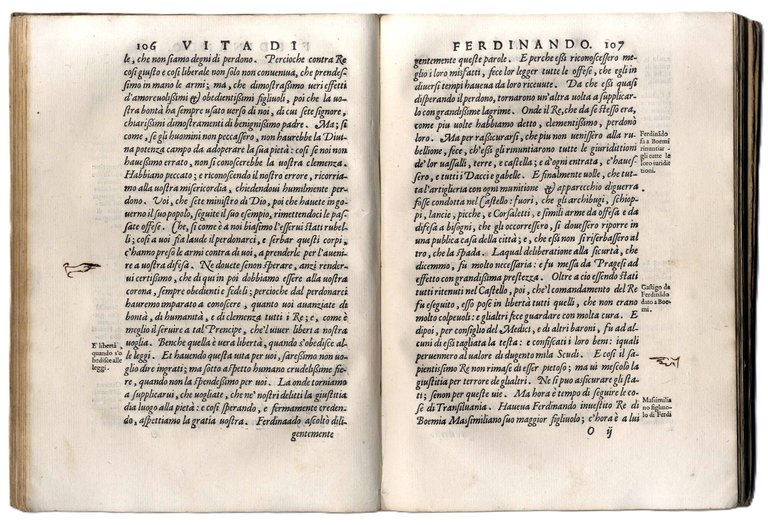 106 VITA DI
le, che non siamo degni di perdono. Percioche contra Re
cosi giusto e cosi liberale non solo non conuenua, che prendes-
simo in mano le armi; ma, che dimostrassimo veri effetti
d'amoreuolissimi & obedientissimi figliuoli, poi che la uo-
stra bontà ha sempre usato verso di noi, di cui sete signore,
chiarissimi dimostramenti di benignissimo padre. Ma; si
come, se gli huomini non peccassero, non haurebbe la Diui-
na potenza campo da adoperare la sua pietà: cosi se noi non
hauessimo errato, non si conoscerebbe la uostra clemenza.
Habbiano peccato; e riconoscendo il nostro errore, ricorria-
mo alla uostra misericordia, chiedendoui humilmente per-
dono. Voi, che sete ministro di Dio, poi che hauete in go-
uerno il suo popolo, seguite il suo esempio, rimettendoci le pas-
sate offese. Che, si come a noi è biasimo l'esserui stati rubel-
li; cosi a voi fia laude il perdonarci, e serbar questi corpi,
c'hanno preso le armi contra di voi, a prenderle per l'aueni-
re a uostra difesa. Ne douete senon sperare, anzi render-
ui certissimo, che di qui in poi dobbiamo essere alla uostra
corona, sempre obedienti e fedeli; percioche dal perdonarci
hauremo imparato a conoscere, quanto uoi auanziate di
bontà, di humanità, e di clemenza tutti i Re; e, come è
meglio il seruire a tal Prencipe, che'l viuer liberi a nostra
uoglia. Benche quella è uera libertà, quando s'obedisce al-
le leggi. Et hauendo questa vita per uoi, saressimo non uo-
glio dire ingrati; ma sotto aspetto humano crudelissime fie-
re, quando non la spendessimo per uoi. La onde torniamo
a supplicarui, che vogliate, che ne'nostri delitti la giustitia
dia luogo alla pietà: e cosi sperando, e fermamente creden-
do, aspettiamo la gratia uostra. Ferdinaado ascoltò dili-
gentemente
E' libertà
quando s'o-
bedisce alle
leggi.
FERDINANDO. 107
gentemente queste parole. E perche essi riconoscessero me-
glio i loro misfatti, fece lor legger tutte le offese, che egli in
diuersi tempi haueua da loro riceuute. Da che essi quasi
disperando il perdono, tornarono un'altra uolta a supplicar-
lo con grandissime lagrime. Onde il Re, che da se stesso era,
come piu uolte habbiamo detto, clementissimo, perdonò
loro. Ma per rassicurarsi, che piu non uenissero alla ru-
bellione, fece, ch'essi gli rinuntiarono tutte le giuriditioni
de'lor vassalli, terre, e castella; e d'ogni entrata, c'hauès-
sero, e tutti i Dacci e gabelle. E finalmente uolle, che tut-
ta l'artiglieria con ogni munitione & apparecchio di guerra
fosse condotta nel Castello: fuori, che gli archibugi, schiop-
pi, lancie, picche, e Corsaletti, e simili arme da offesa e da
difesa a bisogni, che gli occorressero, si douessero riporre in
una publica casa della città; e, che essi non si riserbassero al-
tro, che la spada. Laqual deliberatione alla sicurtà, che
dicemmo, fu molto necessaria: e fu messa da Pragesi ad
effetto con grandissima prestezza. Oltre a cio essendo stati
tutti ritenuti nel Castello, poi, che'l comandamento del Re
fu eseguito, esso pose in libertà tutti quelli, che non erano
molto colpeuoli: e gli altri fece guardare con molta cura. E
dipoi, per consiglio del Medici, e di altri baroni, fu ad al-
cuni di essi tagliata la testa: e confiscati i loro beni: iquali
peruennero al ualor di dugento mila Scudi. E cosi il sa-
pientissimo Re non rimase di esser pietoso; ma ui mescolò la
giustitia per terrore de gli altri. Ne si puo assicurare gli sta-
ti; senon per queste uie. Ma hora è tempo di seguire le co-
se di Transiluania. Haueua Ferdinando inuestito Re di
Boemia Massimiliano suo maggior figliuolo; e c'hora è a lui
O ij
Ferdinãdo
fa a Boemi
rinuntiar-
gli tutte le
loro iuridit-
tioni.
Castigo da
Ferdinãdo
dato a Boe-
mi.
Massimilia
no figliuo-
lo di Ferdi